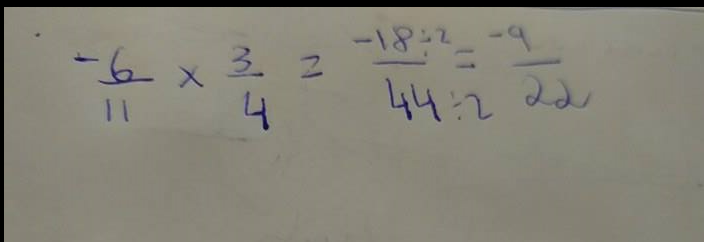 -6/11 × 3/4 = -18÷2/44÷2 = -9/22